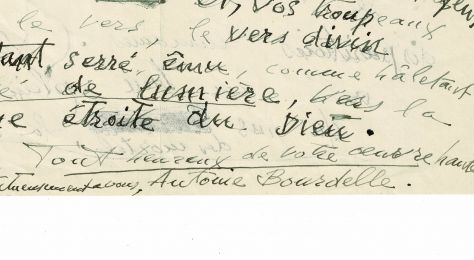 et, vos troupeaux
le vers, le vers divin
tant, serré, ému, comme hâletant
é de lumière, dans la
ne étroite du Dieu.
Tout heureux de votre oeuvre haute
Antoine Bourdelle.